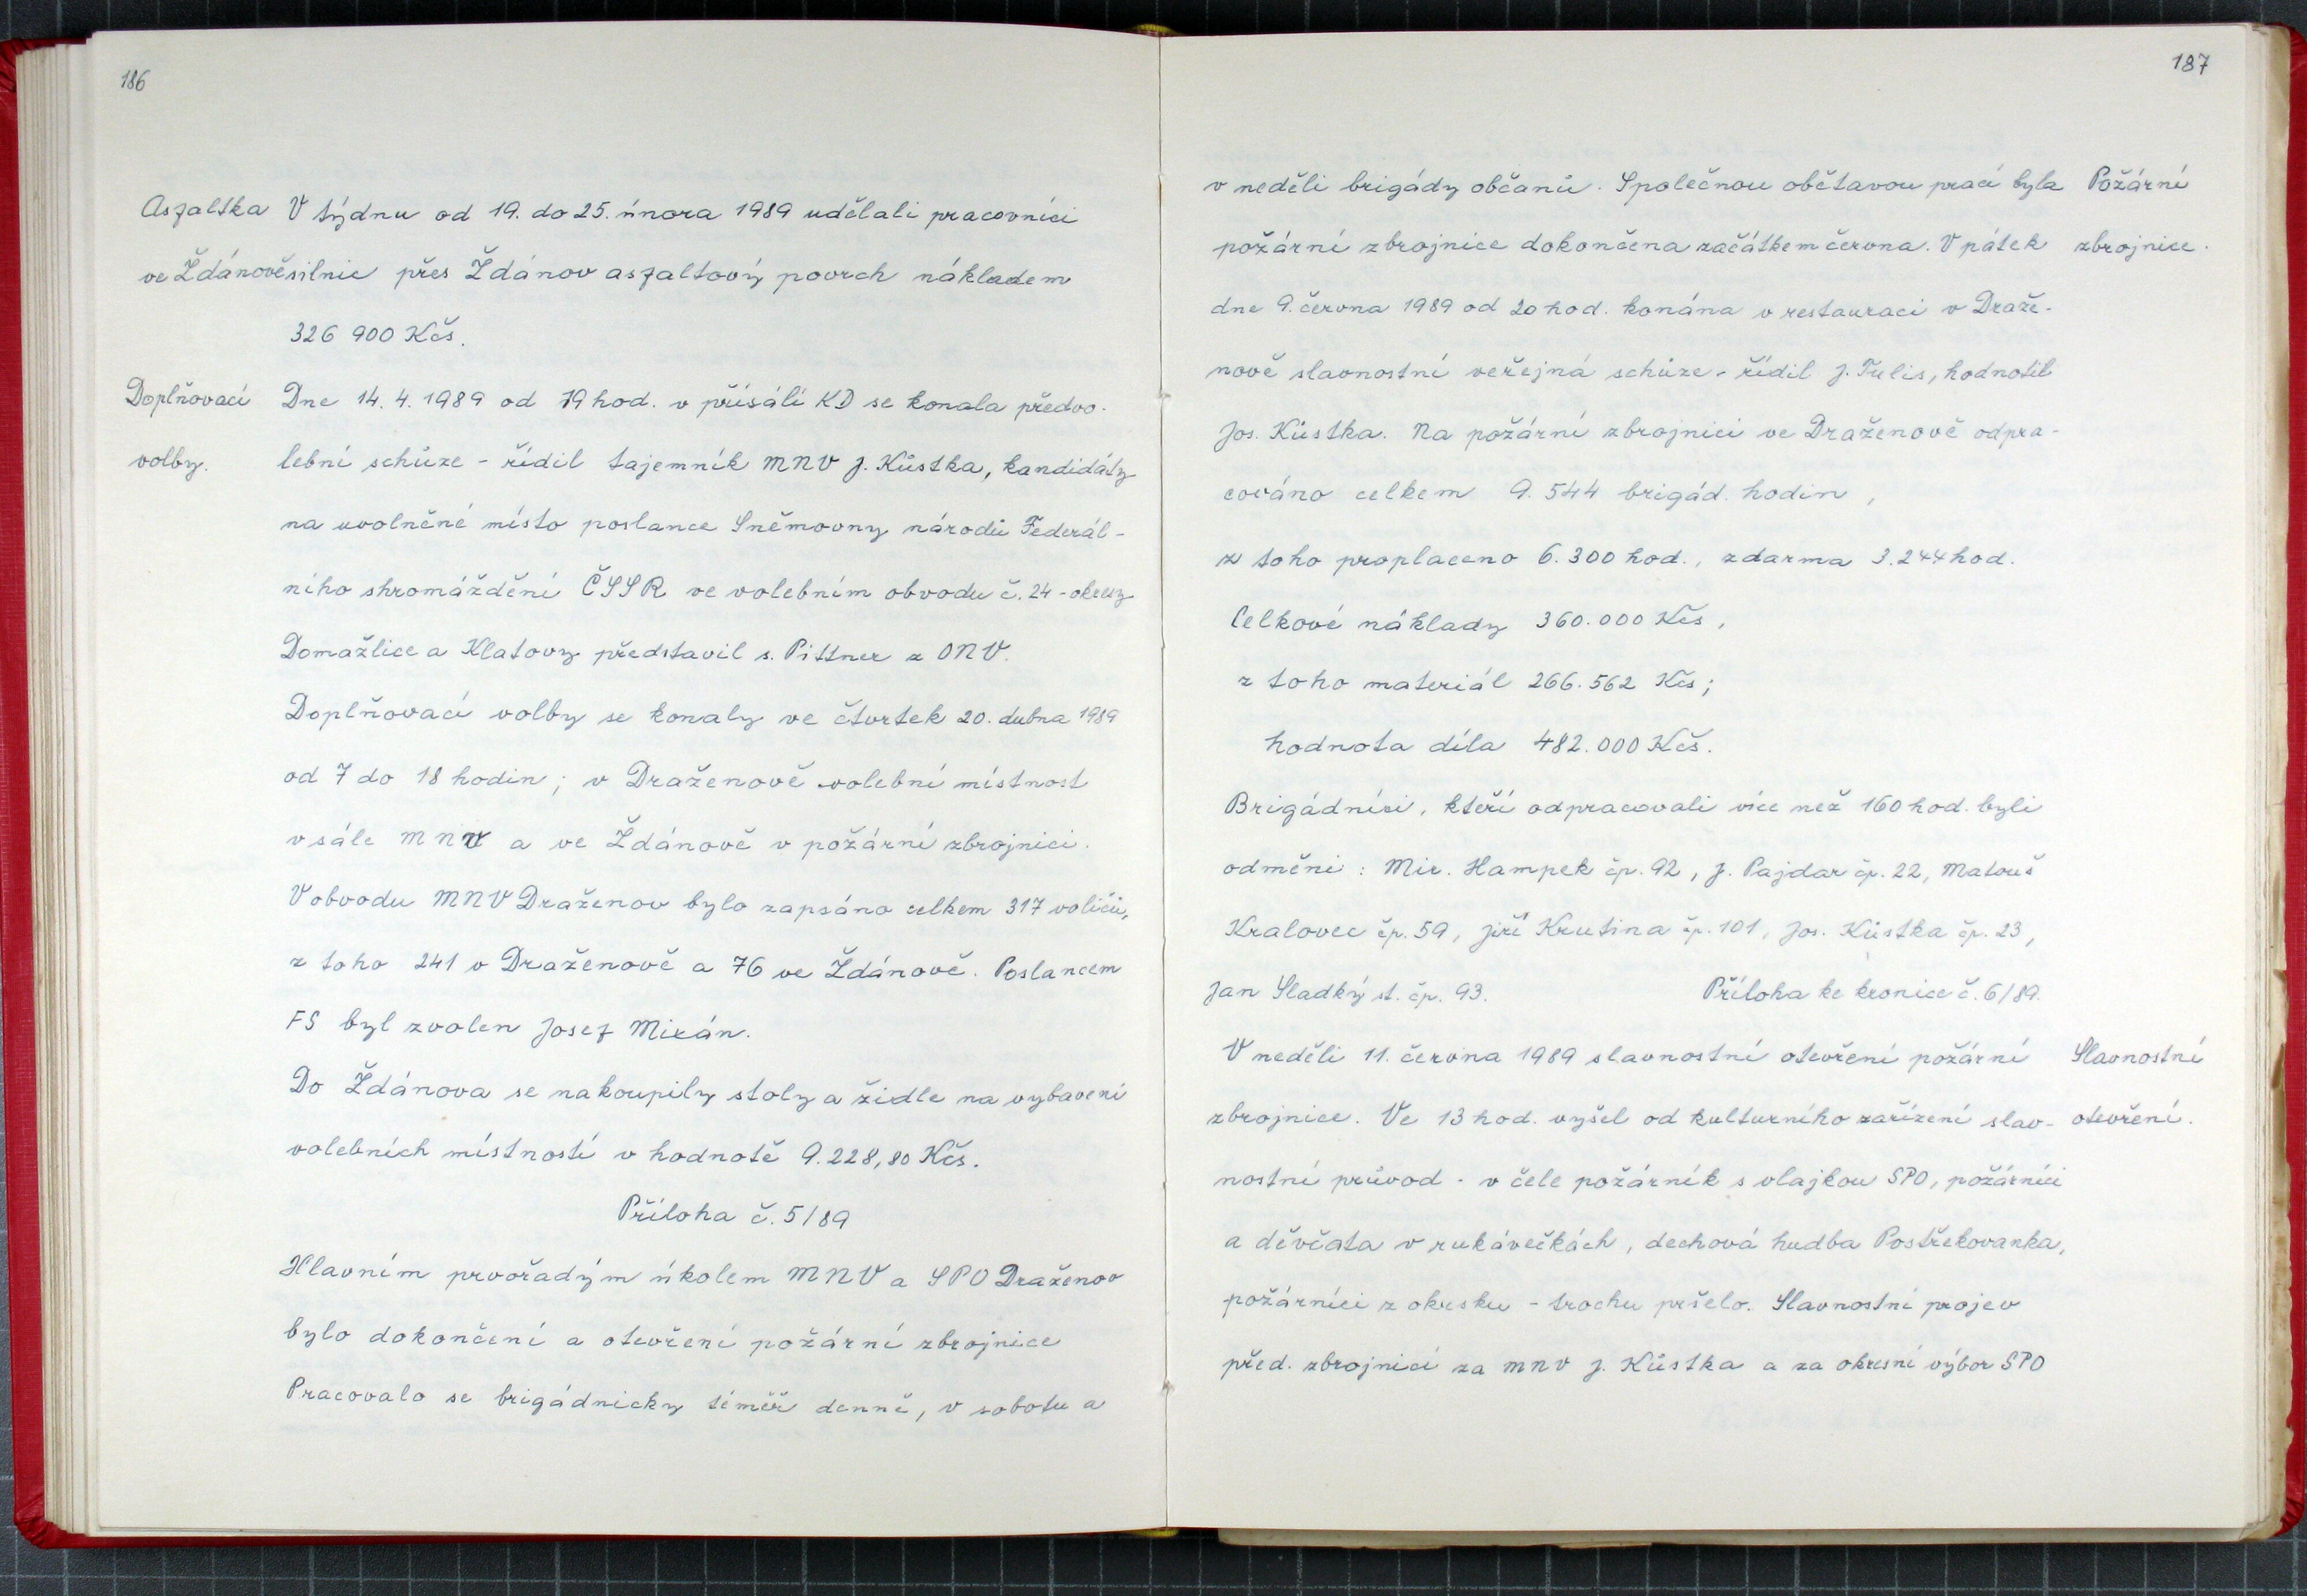 186
Asfaltka V týdnu od 19. do 25. února 1989 udělali pracovníci
ve Ždánově silnic přes Ždánov asfaltový povrch nákladem
326 900 Kčs.
Doplňovací Dne 14. 4. 1989 od 19 hod. v přísálí KD se konala předvo-
volby. lební schůze - řídil tajemník MNV J. Kůstka, kandidáty
na uvolněné místo poslance Sněmovny národů Federál-
ního shromáždění ČSSR ve volebním obvodu č. 24 - okresy
Domažlice a Klatovy představil s. Pittner z ONV.
Doplňovací volby se konaly ve čtvrtek 20. dubna 1989
od 7 do 18 hodin; v Draženově volební místnost
v sále MNV a ve Ždánově v požární zbrojnici.
V obvodu MNV Draženov bylo zapsáno celkem 317 voličů,
z toho 241 v Draženově a 76 ve Ždánově. Poslancem
FS byl zvolen Josef Mixán.
Do Ždánova se nakoupily stoly a židle na vybavení
volebních místností v hodnotě 9.228,80 Kčs.
Příloha č. 5/89
Hlavním prvořadým úkolem MNV a SPO Draženov
bylo dokončení a otevření požární zbrojnice
Pracovalo se brigádnicky téměř denně, v sobotu a
187
v neděli brigády občanů. Společnou obětavou prací byla Požární
požární zbrojnice dokončena začátkem června. V pátek zbrojnice.
dne 9. června 1989 od 20 hod. konána v restauraci v Draže-
nově slavnostní veřejná schůze - řídil J. Tulis, hodnotil
Jos. Kůstka. Na požární zbrojnici ve Draženově odpra-
cováno celkem 9.544 brigád. hodin,
z toho proplaceno 6.300 hod., zdarma 3.244 hod.
Celkové náklady 360.000 Kčs,
z toho materiál 266.562 Kčs;
hodnota díla 482.000 Kčs.
Brigádníci, kteří odpracovali více než 160 hod. byli
odměni: Mir. Hampek čp. 92, J. Pajdar čp. 22, Matouš
Kralovec čp. 59, Jiří Krutina čp. 101, Jos. Kůstka čp. 23,
Jan Sladký st. čp. 93. Příloha ke kronice č. 6/89.
V neděli 11. června 1989 slavnostní otevření požární Slavnostní
zbrojnice. Ve 13 hod. vyšel od kulturního zařízení slav- otevření.
nostní průvod - v čele požárník s vlajkou SPO, požárníci
a děvčata v rukávečkách, dechová hudba Postřekovanka,
požárníci z okrsku - trochu pršelo. Slavnostní projev
před. zbrojnicí za MNV J. Kůstka a za okresní výbor SPO